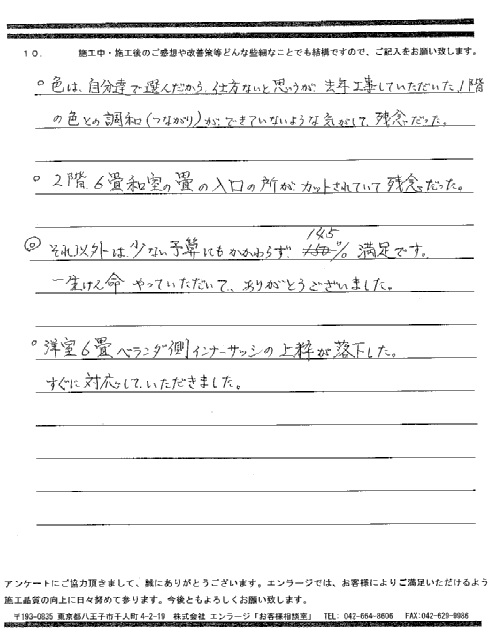 10. 施工中・施工後のご感想や改善策等どんな些細なことでも結構ですので、ご記入をお願い致します。
○ 色は、自分達で選んだから、仕方ないと思うが、去年工事していただいた、1階
の色との調和(つながり)が、できていないような気がして、残念だった。
○ 2階 6畳和室の畳の入口の所が、カットされていて残念だった。
145
◎ それ以外は、少ない予算にもかかわらず、%満足です。
一生けん命 やっていただいて、ありがとうございました。
○ 洋室6畳 ベランダ側 インナーサッシの上枠が落下した。
すぐに対応して、いただきました。
アンケートにご協力頂きまして、誠にありがとうございます。エンラージでは、お客様によりご満足いただけるよう
施工品質の向上に日々努めて参ります。今後ともよろしくお願い致します。
〒193-0835 東京都八王子市千人町4-2-19 株式会社 エンラージ「お客様相談室」 TEL: 042-664-8606 FAX:042-629-9986